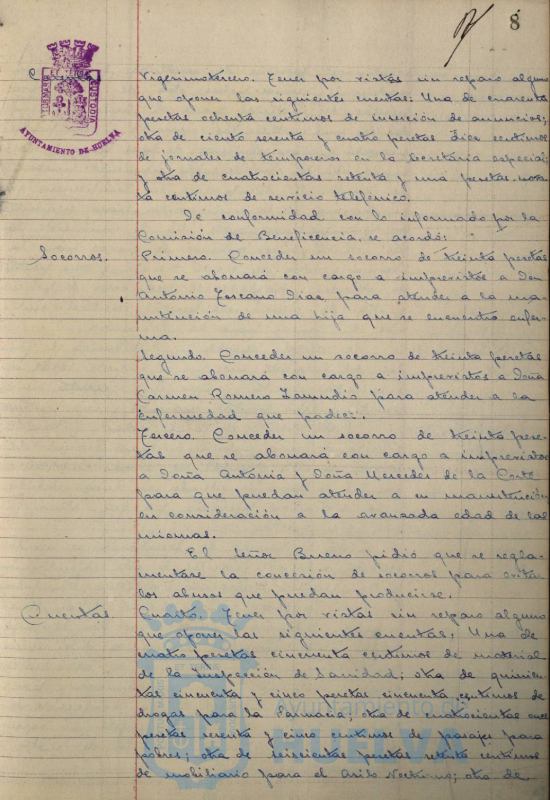 8
AYUNTAMIENTO DE HUELVA
Vigesimotercero. Tener por vistas sin reparo alguno
que oponer las siguientes cuentas: Una de cuarenta
pesetas ochenta centimos de inserción de anuncios;
otra de ciento setenta y cuatro pesetas diez centimos
de jornales de temporeros en la Secretaria especial;
y otra de cuatrocientas setenta y una pesetas noven-
ta centimos de servicio telefonico.
De conformidad con lo informado por la
Comisión de Beneficencia, se acordó:
Socorros.
Primero. Conceder un socorro de treinta pesetas
que se abonará con cargo a imprevistos a Don
Antonio Toscano Diaz para atender a la ma-
nutención de una hija que se encuentra enfer-
ma.
Segundo. Conceder un socorro de treinta pesetas
que se abonará con cargo a imprevistos a Doña
Carmen Romero Zamudio para atender a la
enfermedad que padece.
Tercero. Conceder un socorro de treinta pese-
tas que se abonará con cargo a imprevistos
a Doña Antonia y Doña Mercedes de la Corte
para que puedan atender a su manutención
en consideración a la avanzada edad de las
mismas.
El Señor Bueno pidió que se regla-
mentase la concesión de socorros para evitar
los abusos que puedan producirse.
Cuentas.
Cuarto. Tener por vistas sin reparo alguno
que oponer las siguientes cuentas: Una de
cuatro pesetas cincuenta centimos de material
de la Inspección de Sanidad; otra de quinien-
tas cincuenta y cinco pesetas cincuenta centimos de
drogas para la Farmacia; otra de cuatrocientas once
pesetas sesenta y cinco centimos de pasajes para
pobres; otra de seiscientas pesetas setenta centimos
de mobiliario para el Asilo Nocturno; otra de
Ayuntamiento de
HUELVA